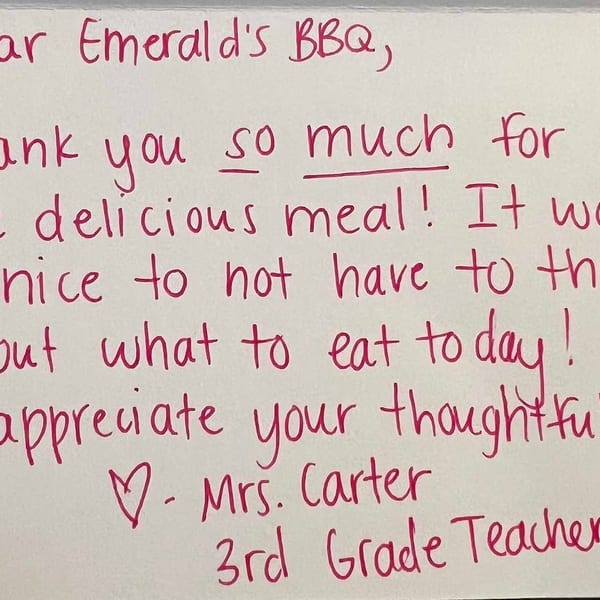 ar Emerald's BBQ,
ank you so much for
delicious meal! It wa
nice to not have to th
out what to eat today!
appreciate your thoughtful
♡- Mrs. Carter
3rd Grade Teacher